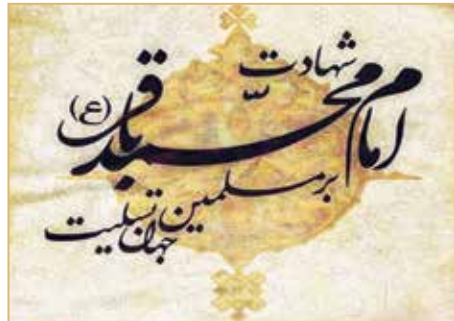 شهادت
امام محمد باقر (ع)
بر مسلمین
جهان تسلیت